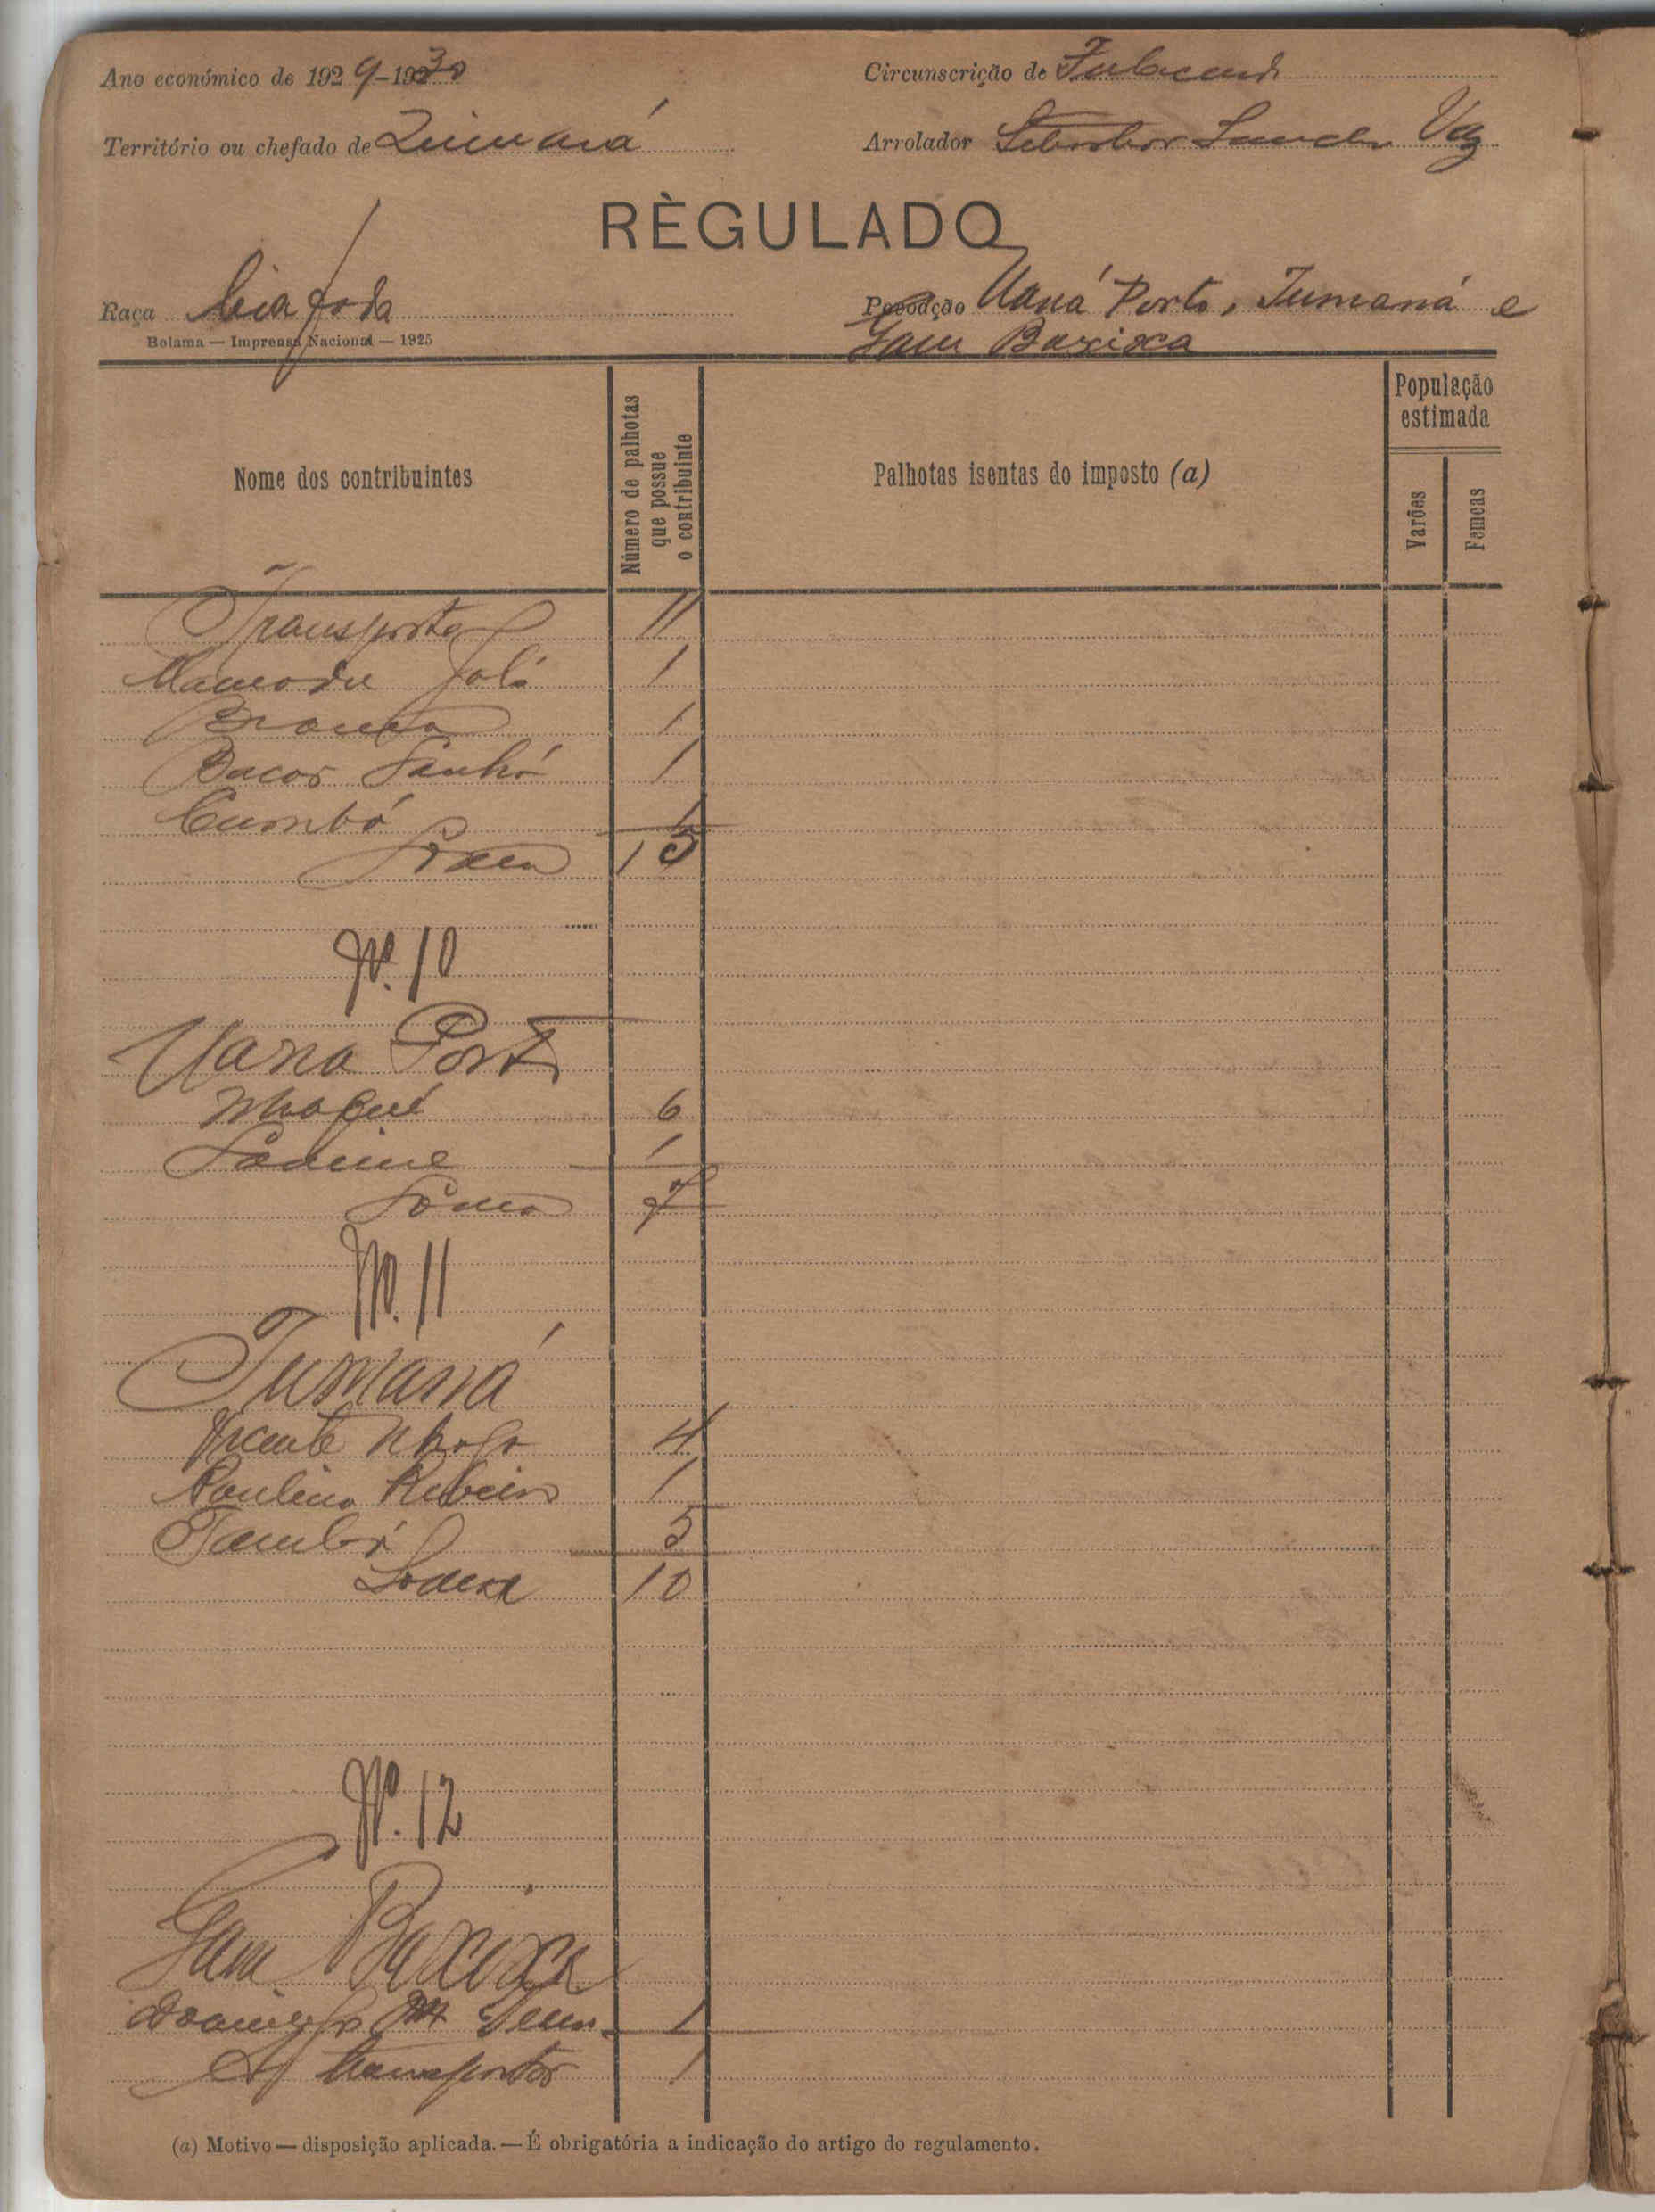 Ano económico de 1929-1930
Circunscrição de
Território ou chefado de
Arrolador Vaz
RÈGULADO
Raça Biafada
Povoação Uaná Porto, Tumaná e
Gam Baxixa
Bolama — Imprensa Nacional — 1925
Nome dos contribuintes
Número de palhotas
que possue
o contribuinte
Palhotas isentas do imposto (a)
População
estimada
Varões
Femeas
Transporte 11
Mamadu 1
1
Bacar Sanhá 1
Cumbá 1
Soma 15
N.º 10
Uana Porto
6
1
Soma 7
N.º 11
Tumaná
Vicente 4
Paulino Ribeiro 1
5
Soma 10
N.º 12
Gam Baxixa
Domingos 1
A transportar 1
(a) Motivo — disposição aplicada. — É obrigatória a indicação do artigo do regulamento.